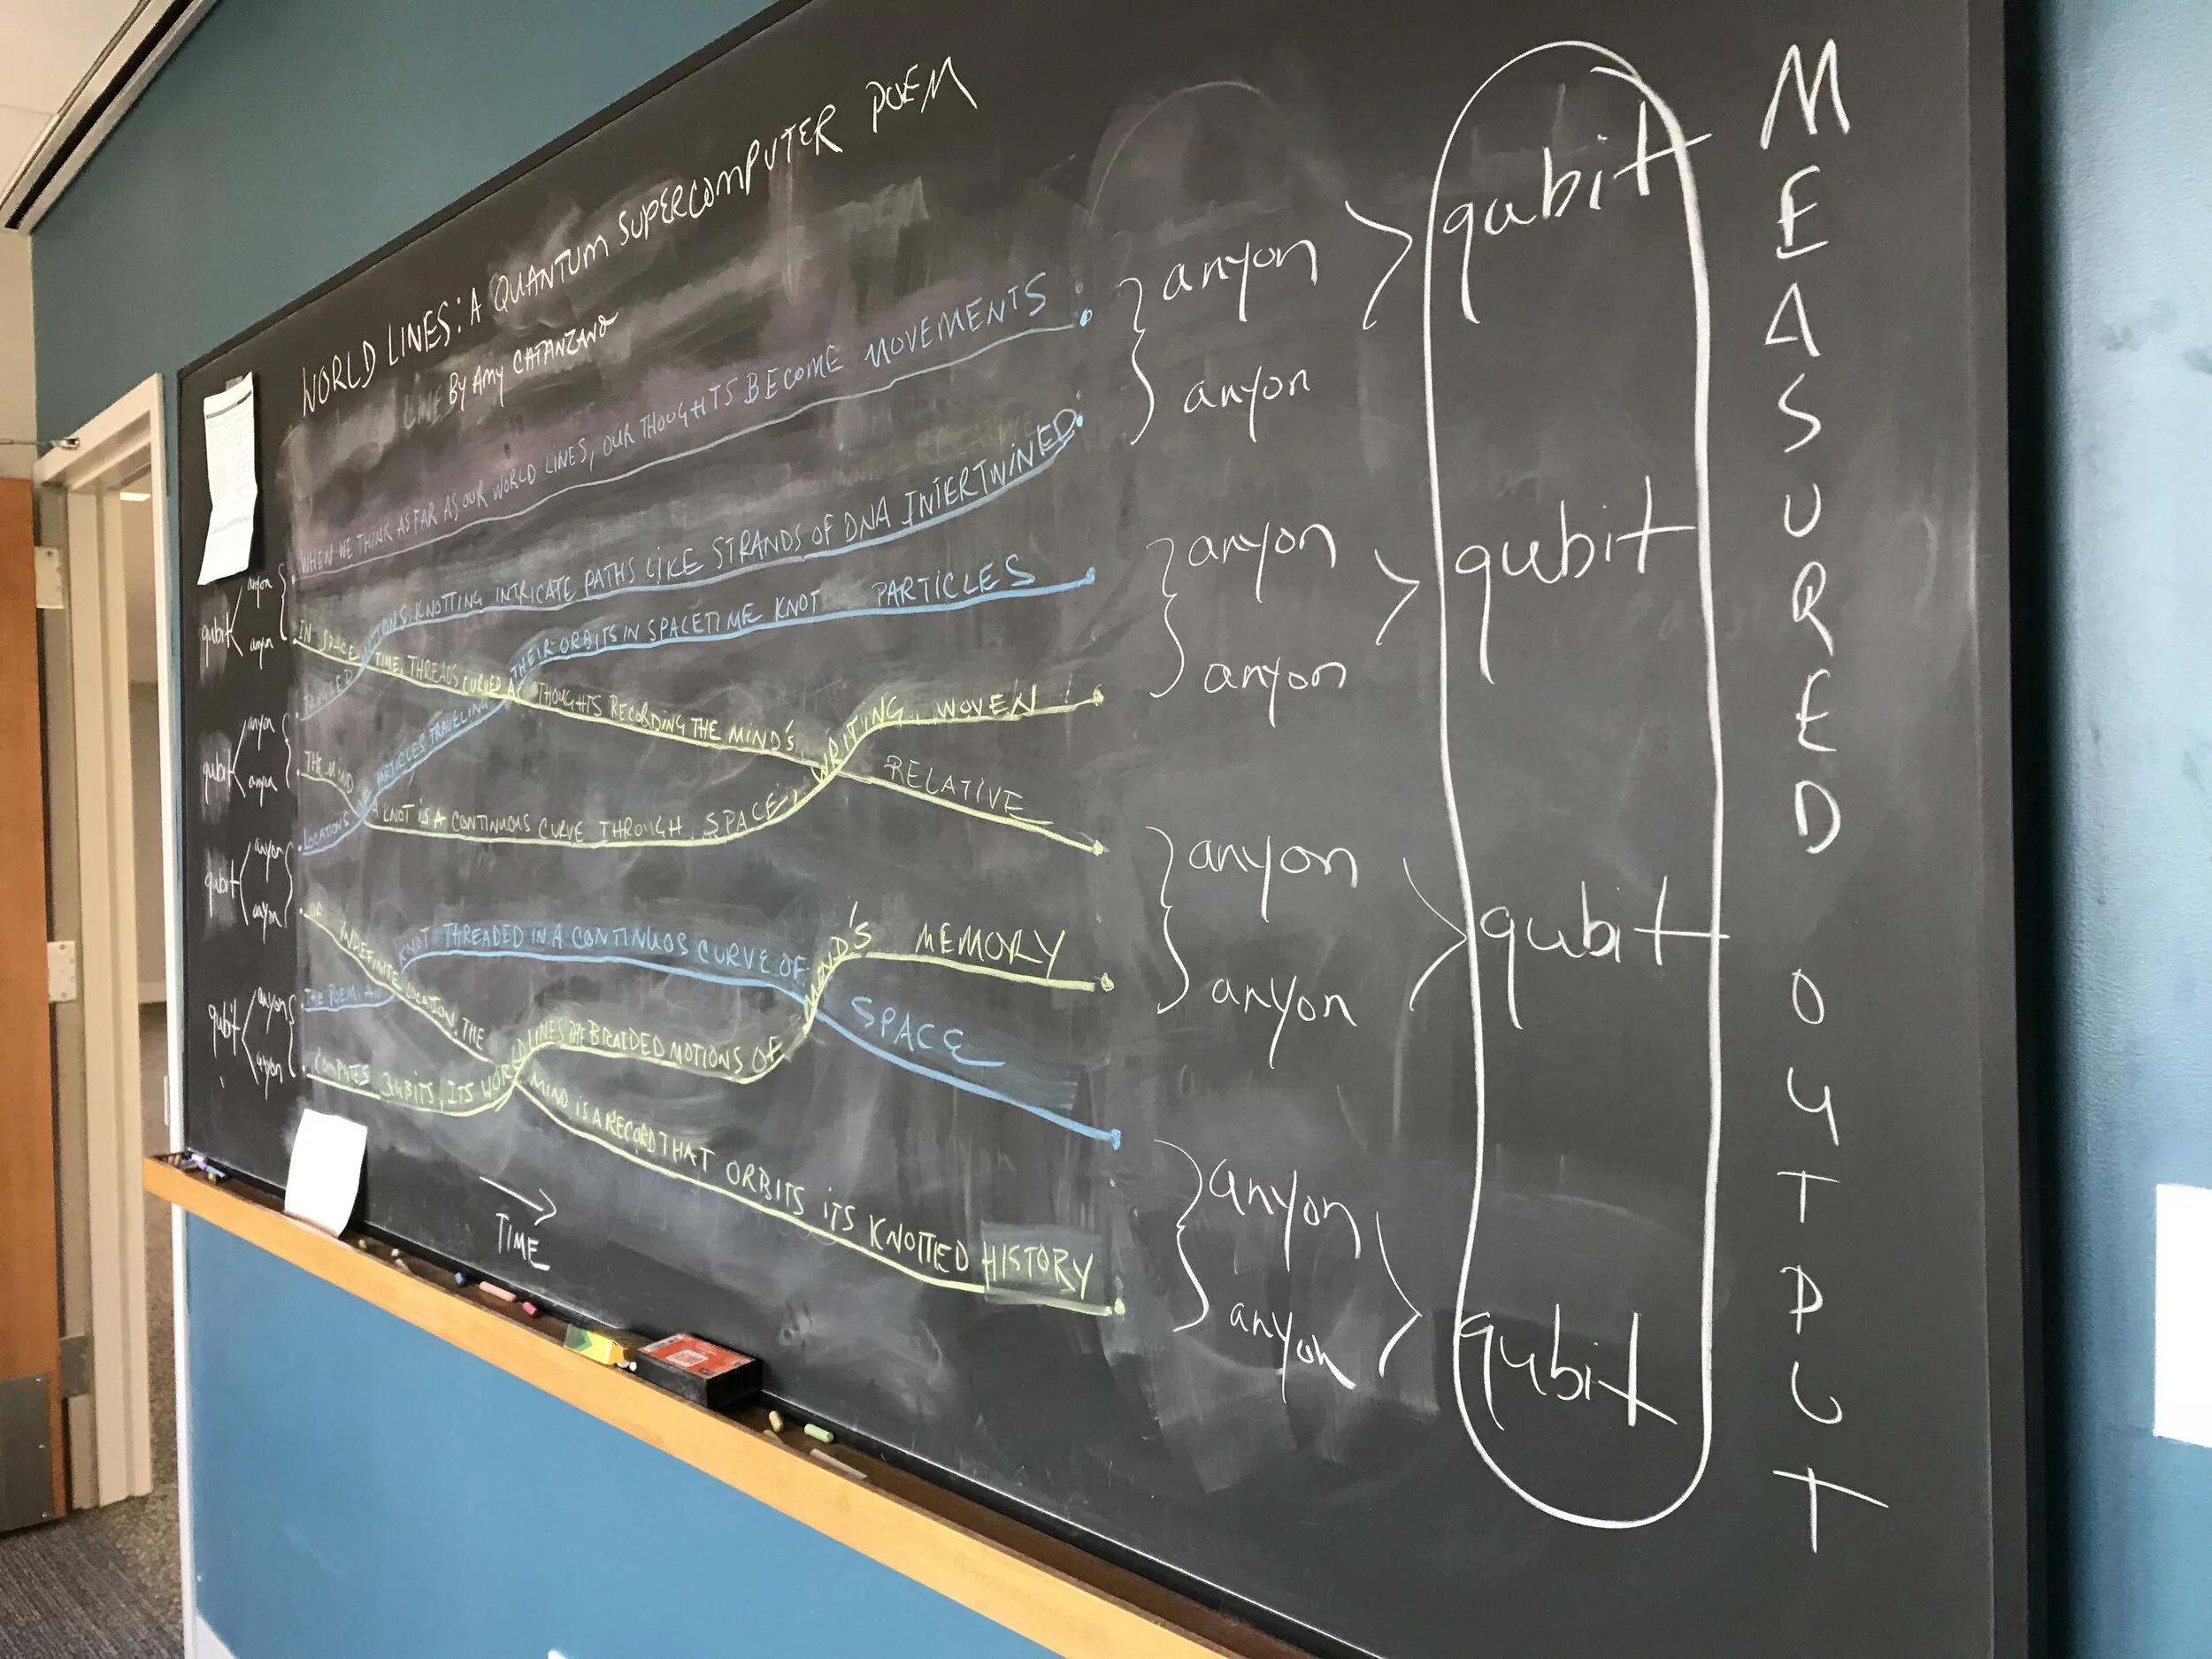 WORLD LINES: A QUANTUM SUPERCOMPUTER POEM
BY AMY CATANZANO
WHEN WE THINK AS FAR AS OUR WORLD LINES, OUR THOUGHTS BECOME MOVEMENTS
IN SPACE TIME, THREADS CURVED AS THOUGHTS RECORDING THE MIND'S RELATIVE
TANGLED MOTIONS KNOTTING INTRICATE PATHS LIKE STRANDS OF DNA INTERTWINED
THE MIND OF A KNOT IS A CONTINUOUS CURVE THROUGH SPACE, WRITING WOVEN
LOCATIONS OF PARTICLES TRAVELING AS THEIR ORBITS IN SPACETIME KNOT PARTICLES
OF INDEFINITE LOCATION, THE WORLD MIND IS A RECORD THAT ORBITS ITS KNOTTED HISTORY
THE POEM, A KNOT THREADED IN A CONTINUOS CURVE OF SPACE
COMPUTES QUBITS, ITS WORLD LINES THE BRAIDED MOTIONS OF MIND'S MEMORY
TIME
qubit
anyon
anyon
qubit
anyon
anyon
qubit
anyon
anyon
qubit
anyon
anyon
anyon
anyon
qubit
anyon
anyon
qubit
anyon
anyon
qubit
anyon
anyon
qubit
MEASURED OUTPUT